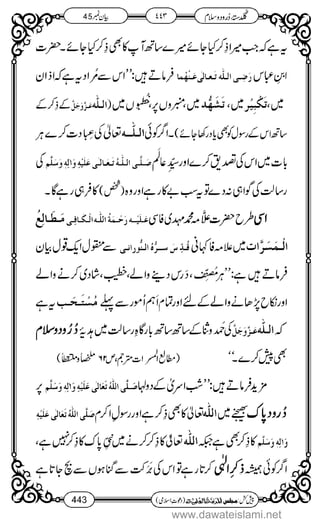 گلدستۂ درود وسلام ٤٤٣ بیان نمبر 45
یہ ہے کہ جب میرا ذِکر کیا جائے میرے ساتھ آپ کا بھی ذِکر کیا جائے۔ حضرت
ابنِ عباس رَضِی اللّٰہُ تَعَالٰی عَنْہُمَا فرماتے ہیں: ’’اس سے مُراد یہ ہے کہ اذان
میں، تکبیر میں، تَشَہُّد میں، منبروں پر، خُطبوں میں (اللّٰہ عَزَّوَجَلَّ کے ذِکر کے
ساتھ ساتھ اس کے رسول کو بھی یاد رکھا جائے)۔ اگر کوئی اللّٰہ تعالٰی کی عبادت کرے ہر
بات میں اس کی تصدیق کرے اور سیّدِ عالَم صَلَّی اللّٰہُ تَعَالٰی عَلَیْہِ وَاٰلِہٖ وَسَلَّم کی
رسالت کی گواہی نہ دے تو یہ سب بے کار ہے اور وہ (شخص) کافر ہی رہے گا۔
اسی طرح حضرت علامہ محمد مہدی فاسی عَلَیْہِ رَحْمَۃُ اللّٰہِ الْکَافِی مَطَالِعُ
الْمَسَرَّات میں علامہ اصفہانی قُدِّسَ سِرُّہُ النُّورانی سے منقول ایک قول بیان
فرماتے ہیں: ’’ہر مُصنِّف، درس دینے والے، خطیب، شادی کرنے والے
اور نکاح پڑھانے والے کے لئے اور تمام اَہم اُمور سے پہلے مُسْتَحَب یہ ہے
کہ اللّٰہ عَزَّوَجَلَّ کی حمد وثنا کے ساتھ ساتھ بارگاہِ رسالت میں ہدیۂ دُرُود وسلام
بھی پیش کرے۔‘‘ (مطالع المسرات مترجم، ص ٦٢ ملخصاً وملتقطاً)
مزید فرماتے ہیں: ’’شبِ اسریٰ کے دولہا صَلَّی اللّٰہُ تَعَالٰی عَلَیْہِ وَاٰلِہٖ وَسَلَّم پر
دُرُودِ پاک بھیجنے میں اللّٰہ تعالٰی کا بھی ذِکر ہے اور رسولِ اکرم صَلَّی اللّٰہُ تَعَالٰی عَلَیْہِ
وَاٰلِہٖ وَسَلَّم کا بھی ذِکر ہے جبکہ اللّٰہ تعالٰی کا ذِکر کرنے میں نبیِّ پاک کا ذِکر نہیں ہے،
اگر کوئی ہمیشہ ذِکرِ الٰہی کرتا رہے تو اس کی بَرَکت سے گناہوں سے بچ جاتا ہے
443
www.dawateislami.net